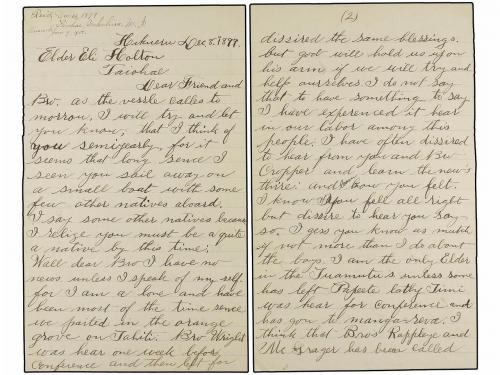 Hikueru Dec. 8, 1897.
Elder Eli Holton
Taiohae
Dear Friend and
Bro. as the vessle calles to
morrow, I will try and let
you know, that I think of
you semiyearly, for it
seems that long sence I
seen you sail away on
a small boat with some
few other natives aboard.
I say some other natives because
I relize you must be a quite
a native by this time,
Wall dear Bro I have no
news unless I speak of my self.
for I am a lone and have
been most of the time sence
we parted in the orange
grove on Tahiti. Bro Wright
was hear one week before
Conference and then left for
(2)
dissired the same blessings.
but god will hold us upon
his arm if we will try and
help ourselves. I do not say
that to have something to say
I have experenced it hear
in our labor among this
people. I have often dissired
to hear from you and Bro
Cropper and learn the new's
there: and how you felt.
I know you fell all right
but dissire to hear you say
so. I gess you know as much
if not more than I do about
the boys. I am the only Elder
in the Tuamutu's unless some
has left Papete Lothy Timi
was hear for Conference and
has gon to mangareva. I
think that Bros Rappleye and
Mc Grager has bean called